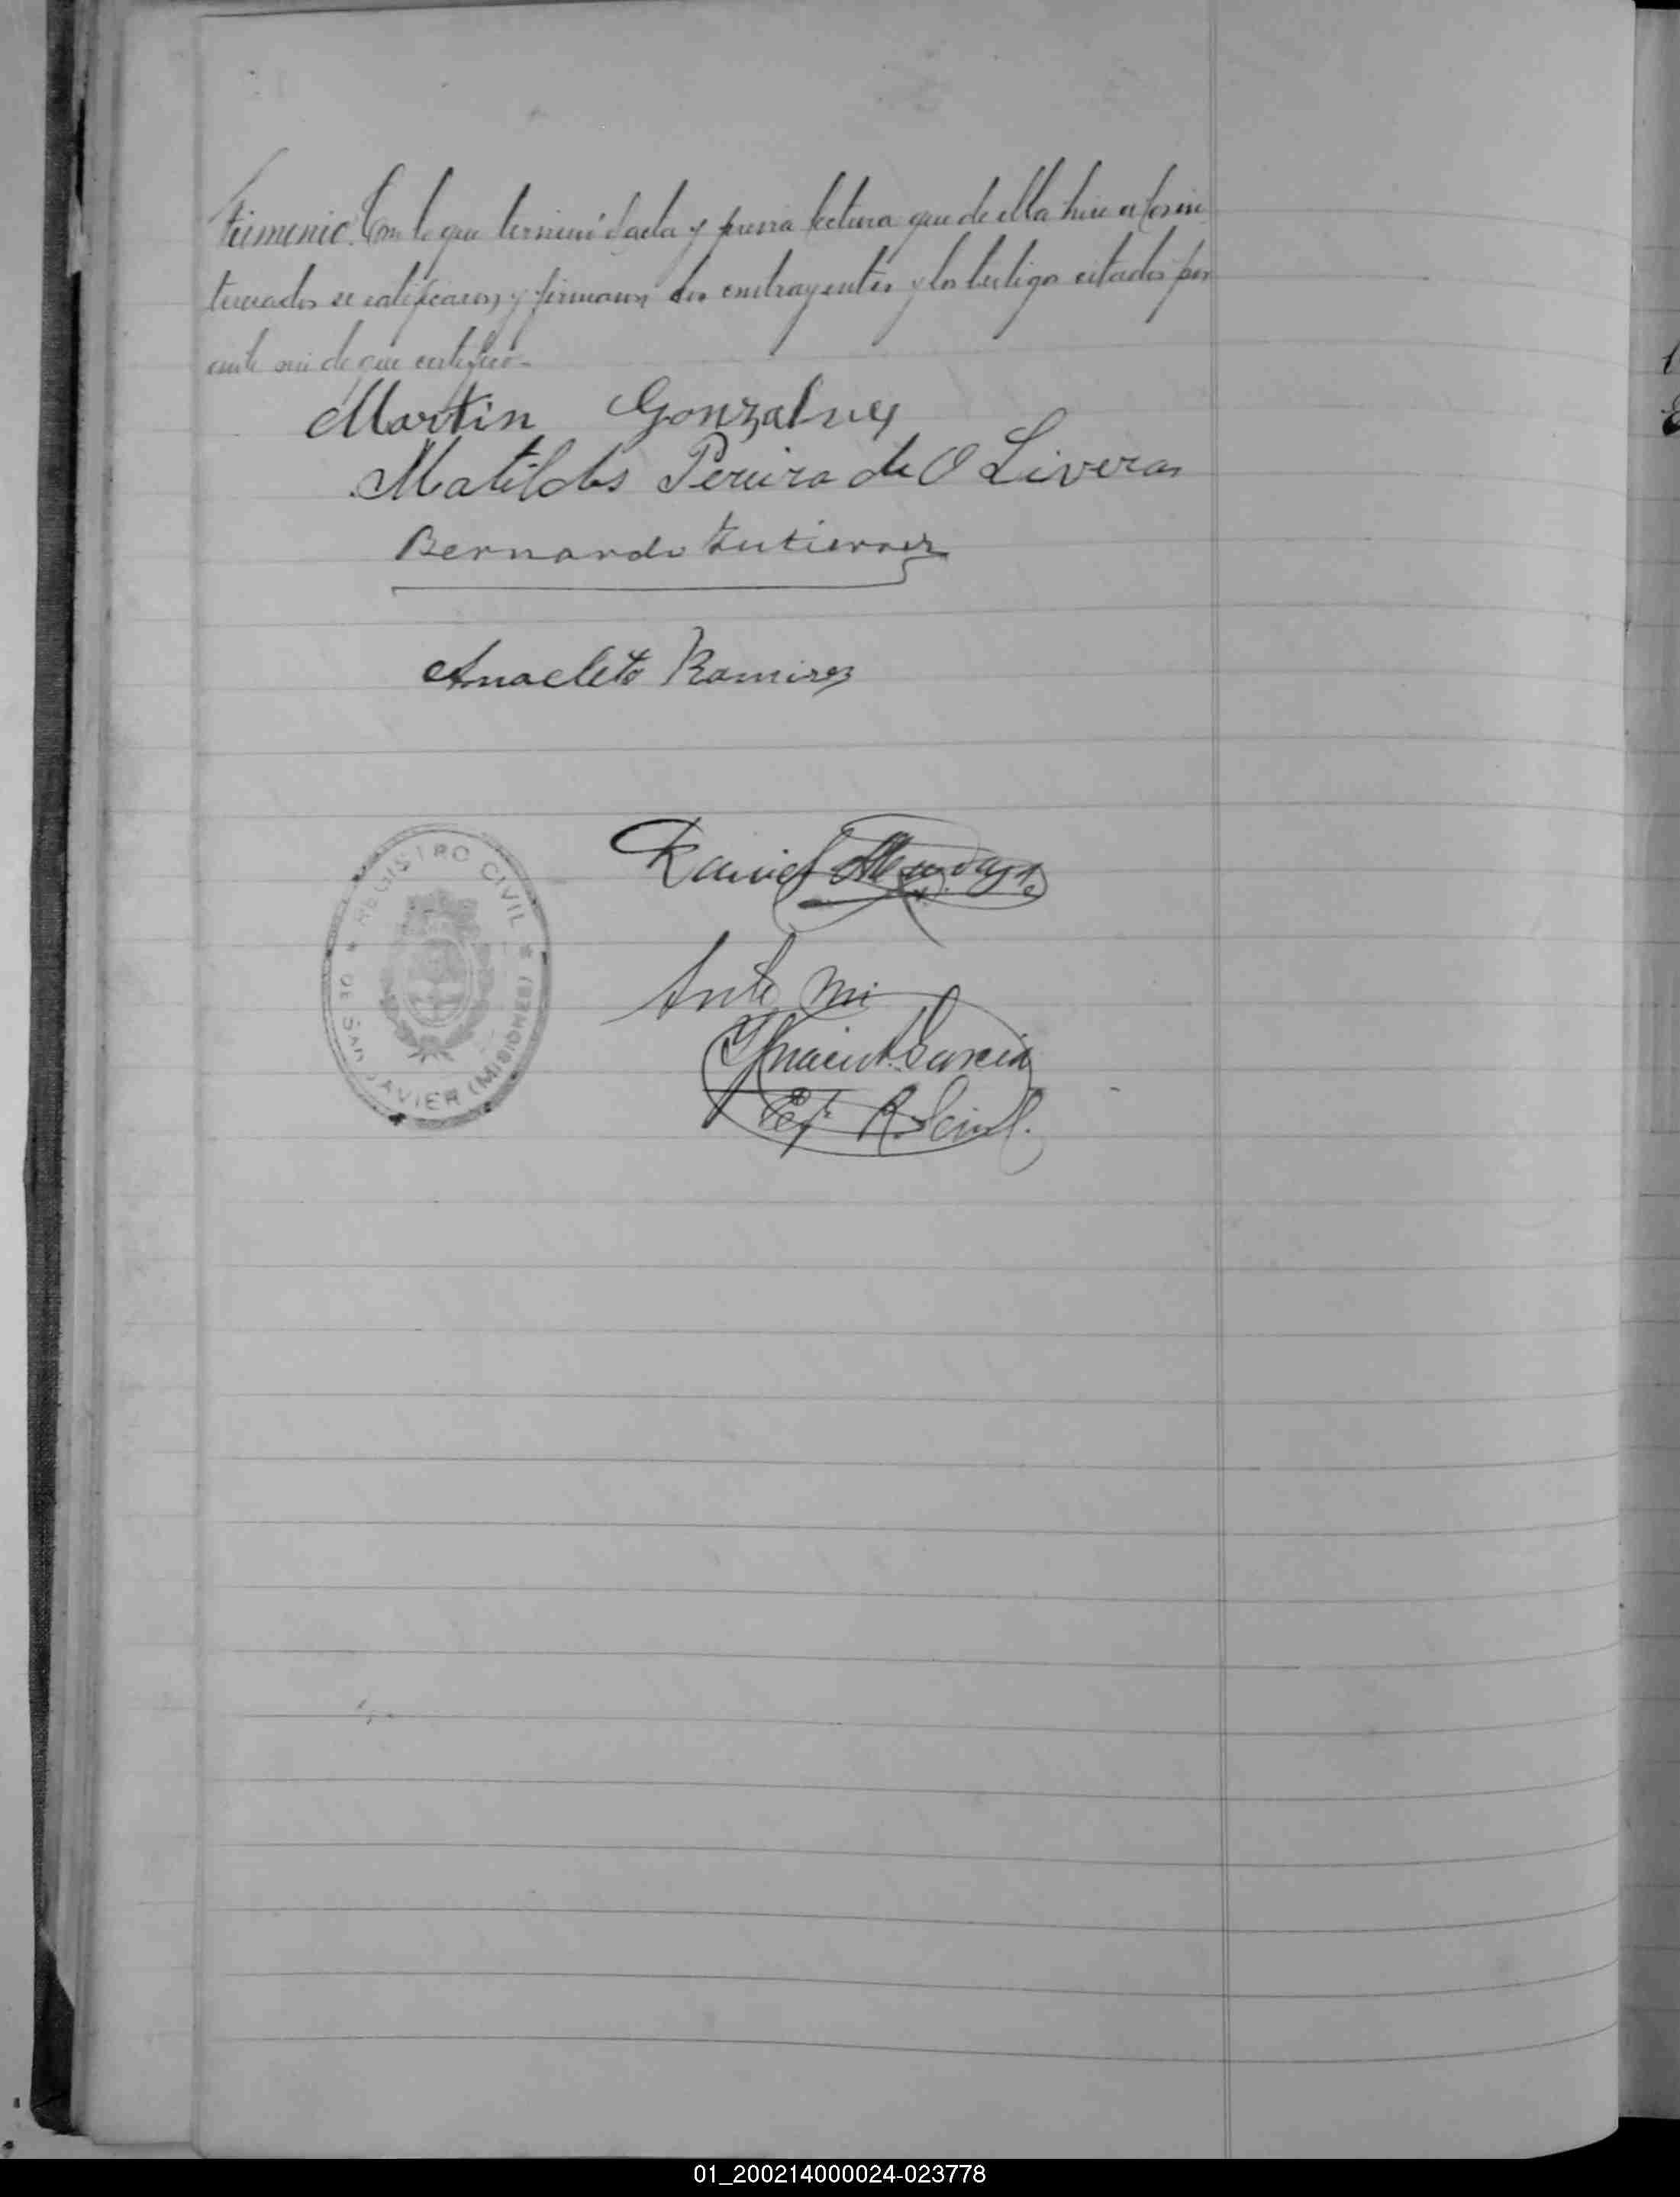 trimonio. Con lo que terminó el acta y previa lectura que de ella hice a los in
teresados se ratificaron y firmaron los contrayentes y los testigos citados por
ante mi de que certifico.-
Martin Gonzalves
Matildes Pereira de O Livera
Bernardo Gutierrez
Anacleto Ramirez
Daniel
REGISTRO CIVIL
DE SAN JAVIER (MISIONES)
Ante mi
Garcia
R. Civil.
01_200214000024-023778